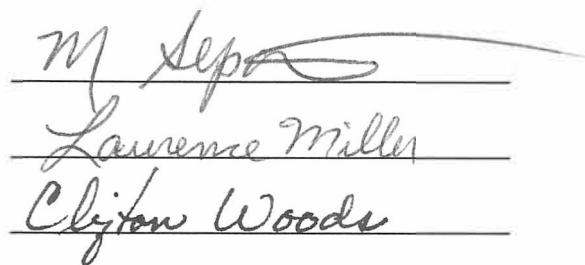 M
Lawrence Miller
Clifton Woods